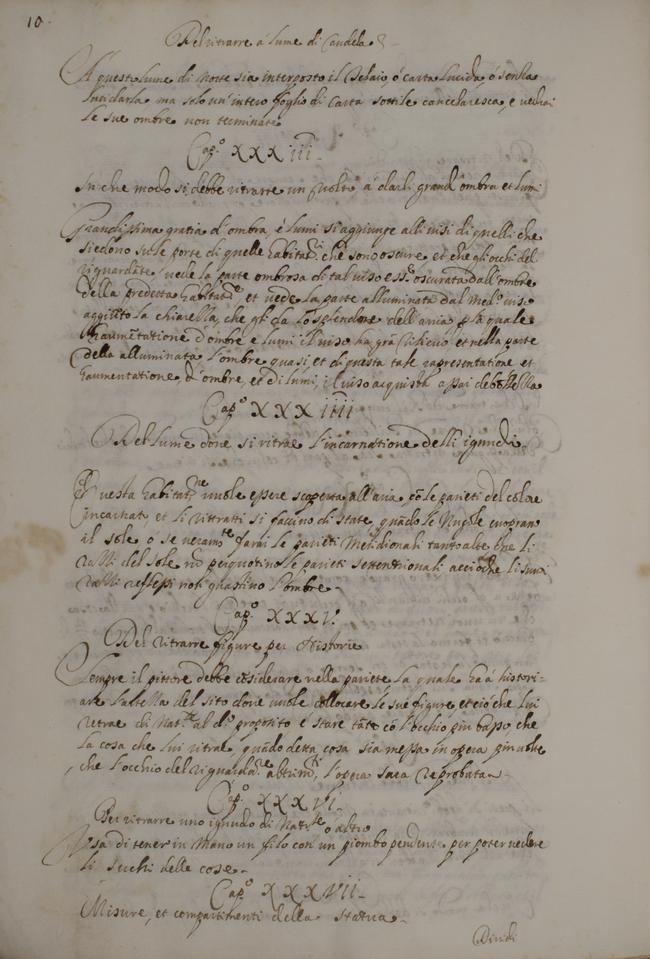 10
Del ritrarre a lume di Candela
A questo lume di Notte sia interposto il Telaio, ò carta lucida, ò senza
lucidarla ma solo un'intero foglio di Carta sottile cancelaresca, e vedrai
le sue ombre non terminate
Cap.º XXXiii.
In che modo si debbe ritrarre un volto à darli grand' ombra et lumi
Grandissima gratia d'ombra, è lumi si aggiunge alli visi di quelli che
siedono su le porte di quelle habitat.ⁿⁱ che sono oscure, et che gli occhi del
riguardate vede la parte ombrosa di tal viso ess.ʳ oscurata dall'ombre
della predetta habitat.ⁿᵉ et vede la parte alluminata dal med.º viso
aggiuto la chiarezza, che gli da lo splendore dell'aria p la quale
haumetatione d'ombre e lumi il viso ha grã et nella parte
della alluminata l'ombre quasi, et di questa tale rapresentatione et
haumentatione, d'ombre, et di lumi, il viso acquista assai de bellezza
Cap.º XXXiiii
Del lume dove si ritrae l'incarnatione delli ignudi.
Questa habitat.ⁿᵉ vuole essere scoperta all'aria, cõ le parieti del colore
incarnato, et li rittratti si faccino di state, quãdo le Nugole cuoprano
il sole, ò se veram.ᵗᵉ farai le parieti Meridionali tanto alte che li
razzi del sole nõ percuotino le parieti settentrionali, accioche li suoi
razzi reflessi non guastino l'ombre.
Cap.º XXXV.
Del ritrarre figure per Historie
Sempre il pittore debbe cõsiderare nella pariete la quale ha à histori-
are l'altezza del sito dove vuole collocare le sue figure, et ciò che lui
retrae di Nat.ˡᵉ al d.º proposito e stare tãto cõ l'occhio più basso, che
la cosa che lui ritrae, quãdo detta cosa sia messa in opera più alte
che l'occhio del riguarda.ᵉ altrim.ᵗⁱ l'opera sara reprobata.
Cap.º XXXVi.
Per ritrarre uno ignudo di Nat.ˡᵉ ò altro
Usa di tener in Mano un filo con un piombo pendente per poter vedere
li scuchi delle cose.
Cap.º XXXVii.
Misure, et compartimenti della statua.
Dividi